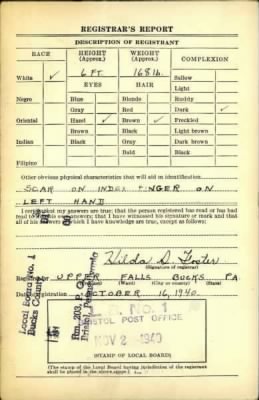 REGISTRAR'S REPORT
DESCRIPTION OF REGISTRANT
RACE HEIGHT (Approx.) WEIGHT (Approx.) COMPLEXION
White ✓ 6 FT 168 lb. Sallow
EYES HAIR Light
Negro Blue Blonde Ruddy
Gray Red Dark ✓
Oriental Hazel ✓ Brown ✓ Freckled
Brown Black Light brown
Indian Black Gray Dark brown
Bald Black
Filipino
Other obvious physical characteristics that will aid in identification
SCAR ON INDEX FINGER ON
LEFT HAND
I certify that my answers are true; that the person registered has read or has had
read to him his own answers; that I have witnessed his signature or mark and that
all of his answers of which I have knowledge are true, except as follows:
Hilda S. Foster
(Signature of registrar)
Registrar for UPPER FALLS BUCKS PA
(Ward) (City or county) (State)
Date of registration OCTOBER 16, 1940.
Local Board No. 1
Bucks County
Rm. 203, P. O.
L. B. No. 1
BRISTOL POST OFFICE
NOV 2 1940
(STAMP OF LOCAL BOARD)
(The stamp of the Local Board having jurisdiction of the registrant
shall be placed in the above space.)